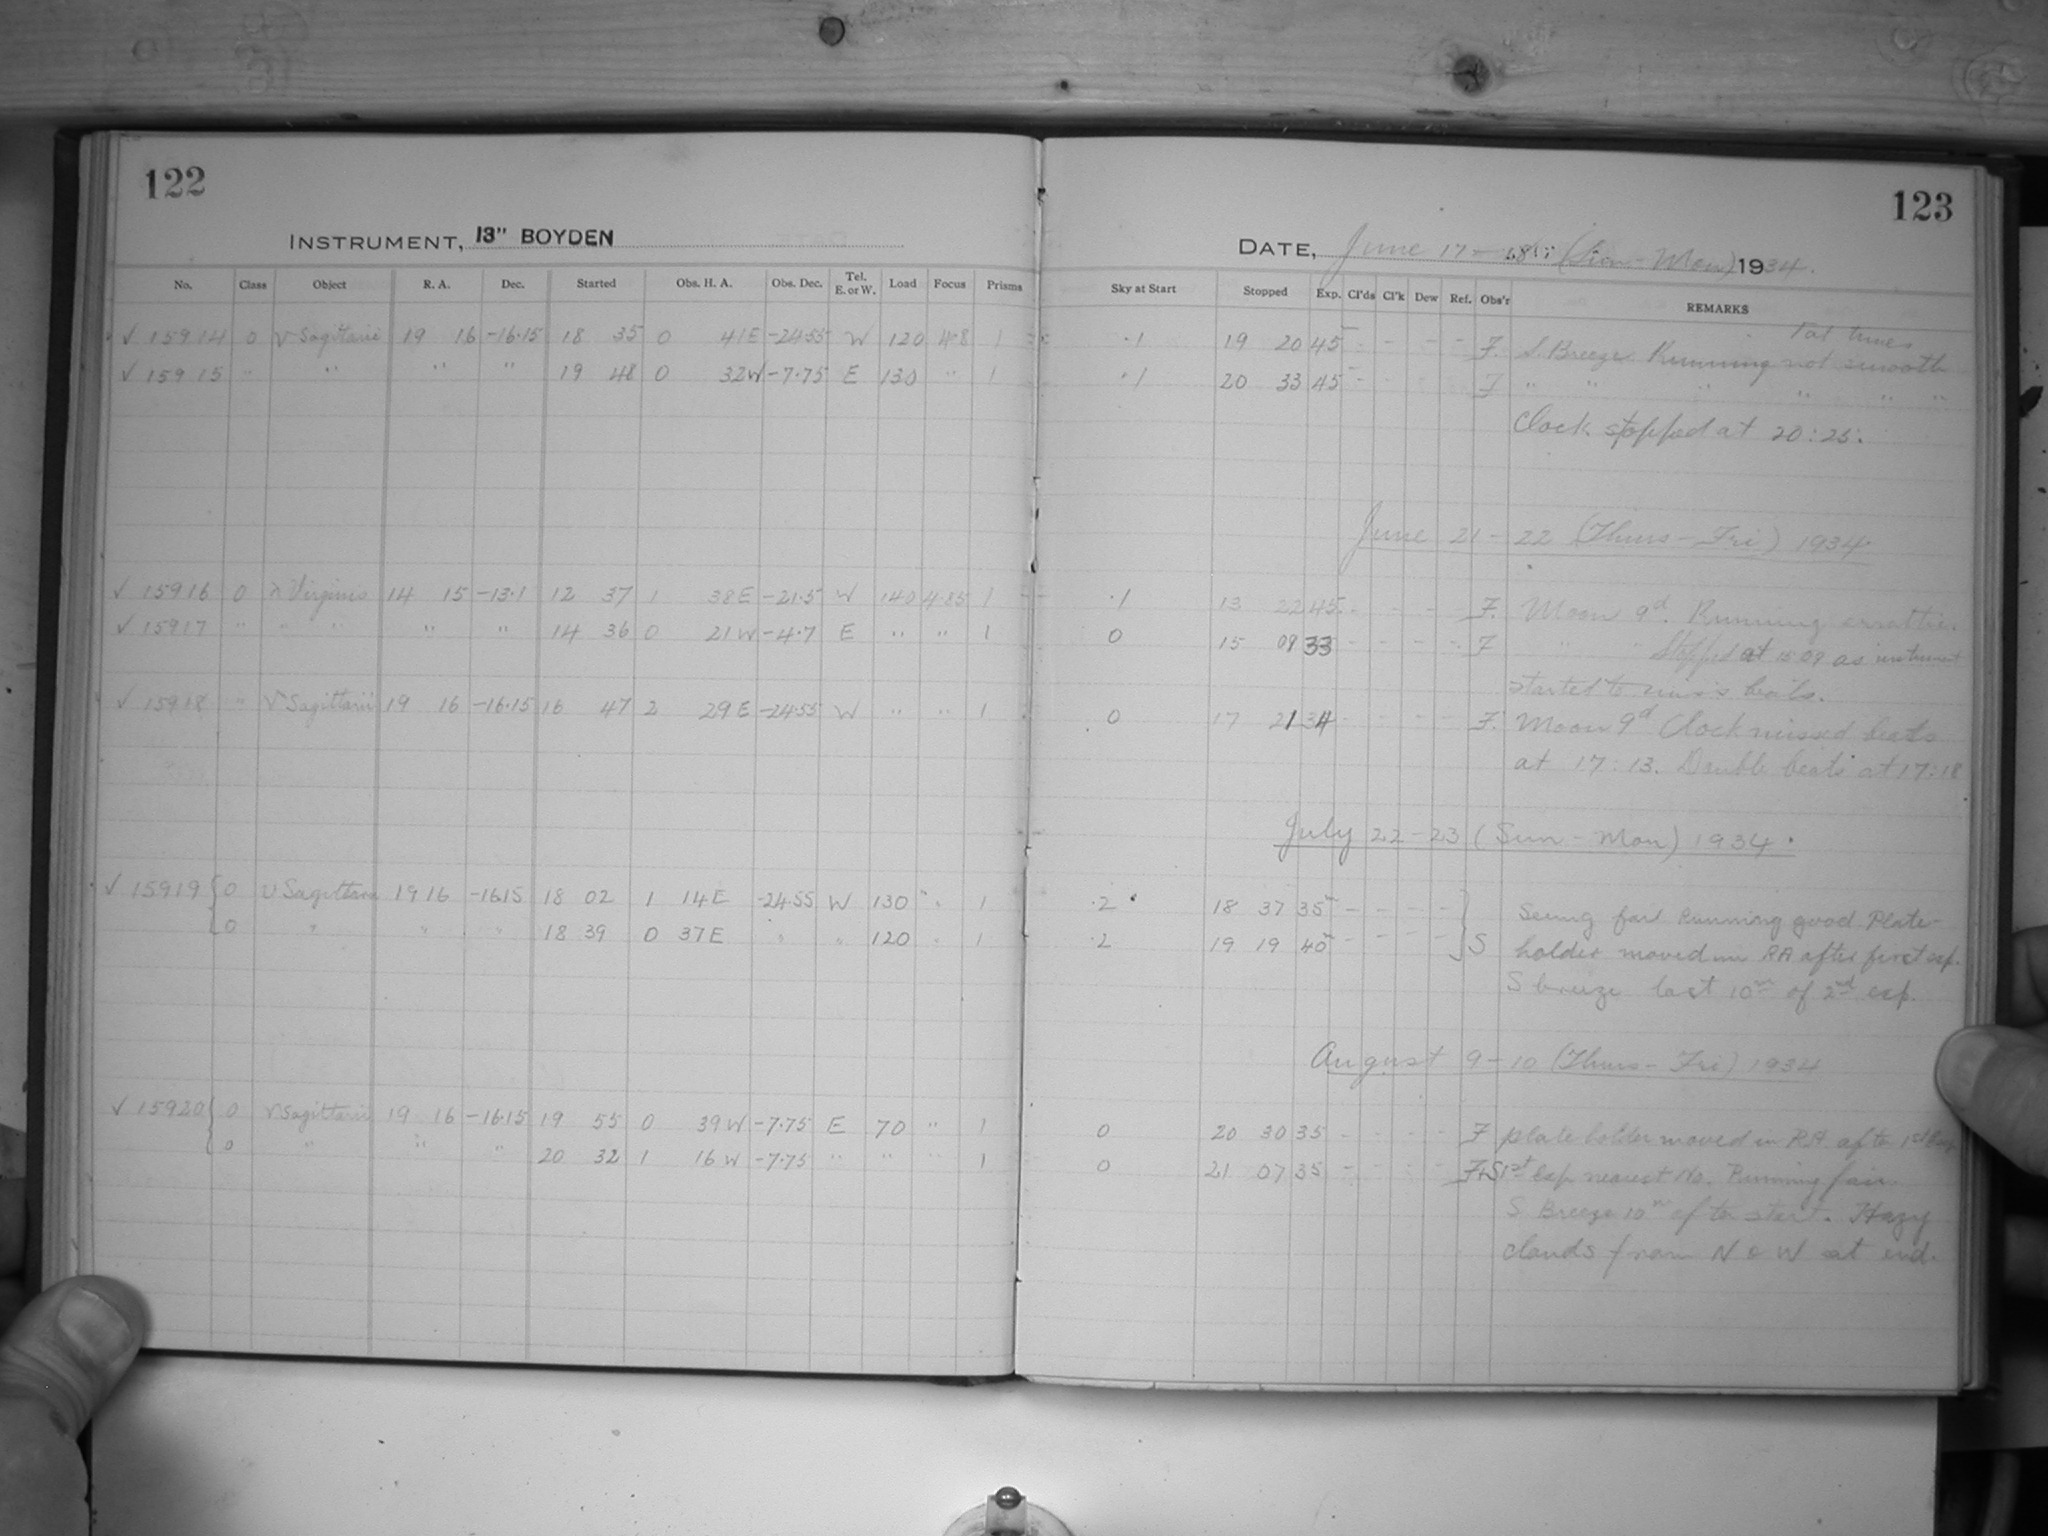 122
INSTRUMENT, 13" BOYDEN
No. Class Object R. A. Dec. Started Obs. H. A. Obs. Dec. Tel. E. or W. Load Focus Prisms
✓ 15914 0 υ Sagittarii 19 16 -16.15 18 35 0 41E -24.55 W 120 4.8 1
✓ 15915 " " " " 19 48 0 32W -7.75 E 130 " 1
✓ 15916 0 λ Virginis 14 15 -13.1 12 37 1 38E -21.5 W 140 4.85 1
✓ 15917 " " " " " 14 36 0 21W -4.7 E " " 1
✓ 15918 " υ Sagittarii 19 16 -16.15 16 47 2 29E -24.55 W " " 1
✓ 15919 { 0 υ Sagittarii 19 16 -16.15 18 02 1 14E -24.55 W 130 " 1
0 " " " 18 39 0 37E " " 120 " 1
✓ 15920 { 0 υ Sagittarii 19 16 -16.15 19 55 0 39W -7.75 E 70 " 1
0 " " " 20 32 1 16W -7.75 " " " 1
123
DATE, June 17-18 (Sun-Mon) 1934.
Sky at Start Stopped Exp. Cl'ds Cl'k Dew Ref. Obs'r REMARKS
.1 19 20 45 - - - - F. S. Breeze. Running not smooth
at times
.1 20 33 45 - - - - F " " " " " "
Clock stopped at 20:25.
June 21-22 (Thurs-Fri) 1934.
.1 13 22 45 - - - - F. Moon 9d. Running erratic.
0 15 09 33 - - - - F " " Stopped at 15 09 as instrument
started to miss beats.
0 17 21 34 - - - - F. Moon 9d Clock missed beats
at 17:13. Double beats at 17:18
July 22-23 (Sun-Mon) 1934.
.2 18 37 35 - - - - } Seeing fair Running good Plate-
.2 19 19 40 - - - - } S holder moved in RA after first exp.
S breeze last 10m of 2nd exp.
August 9-10 (Thurs-Fri) 1934
0 20 30 35 - - - - F plate holder moved in RA after 1st Exp
0 21 07 35 - - - - F+S 1st Exp nearest No. Running fair.
S Breeze 10m after start. Hazy
clouds from N & W at end.